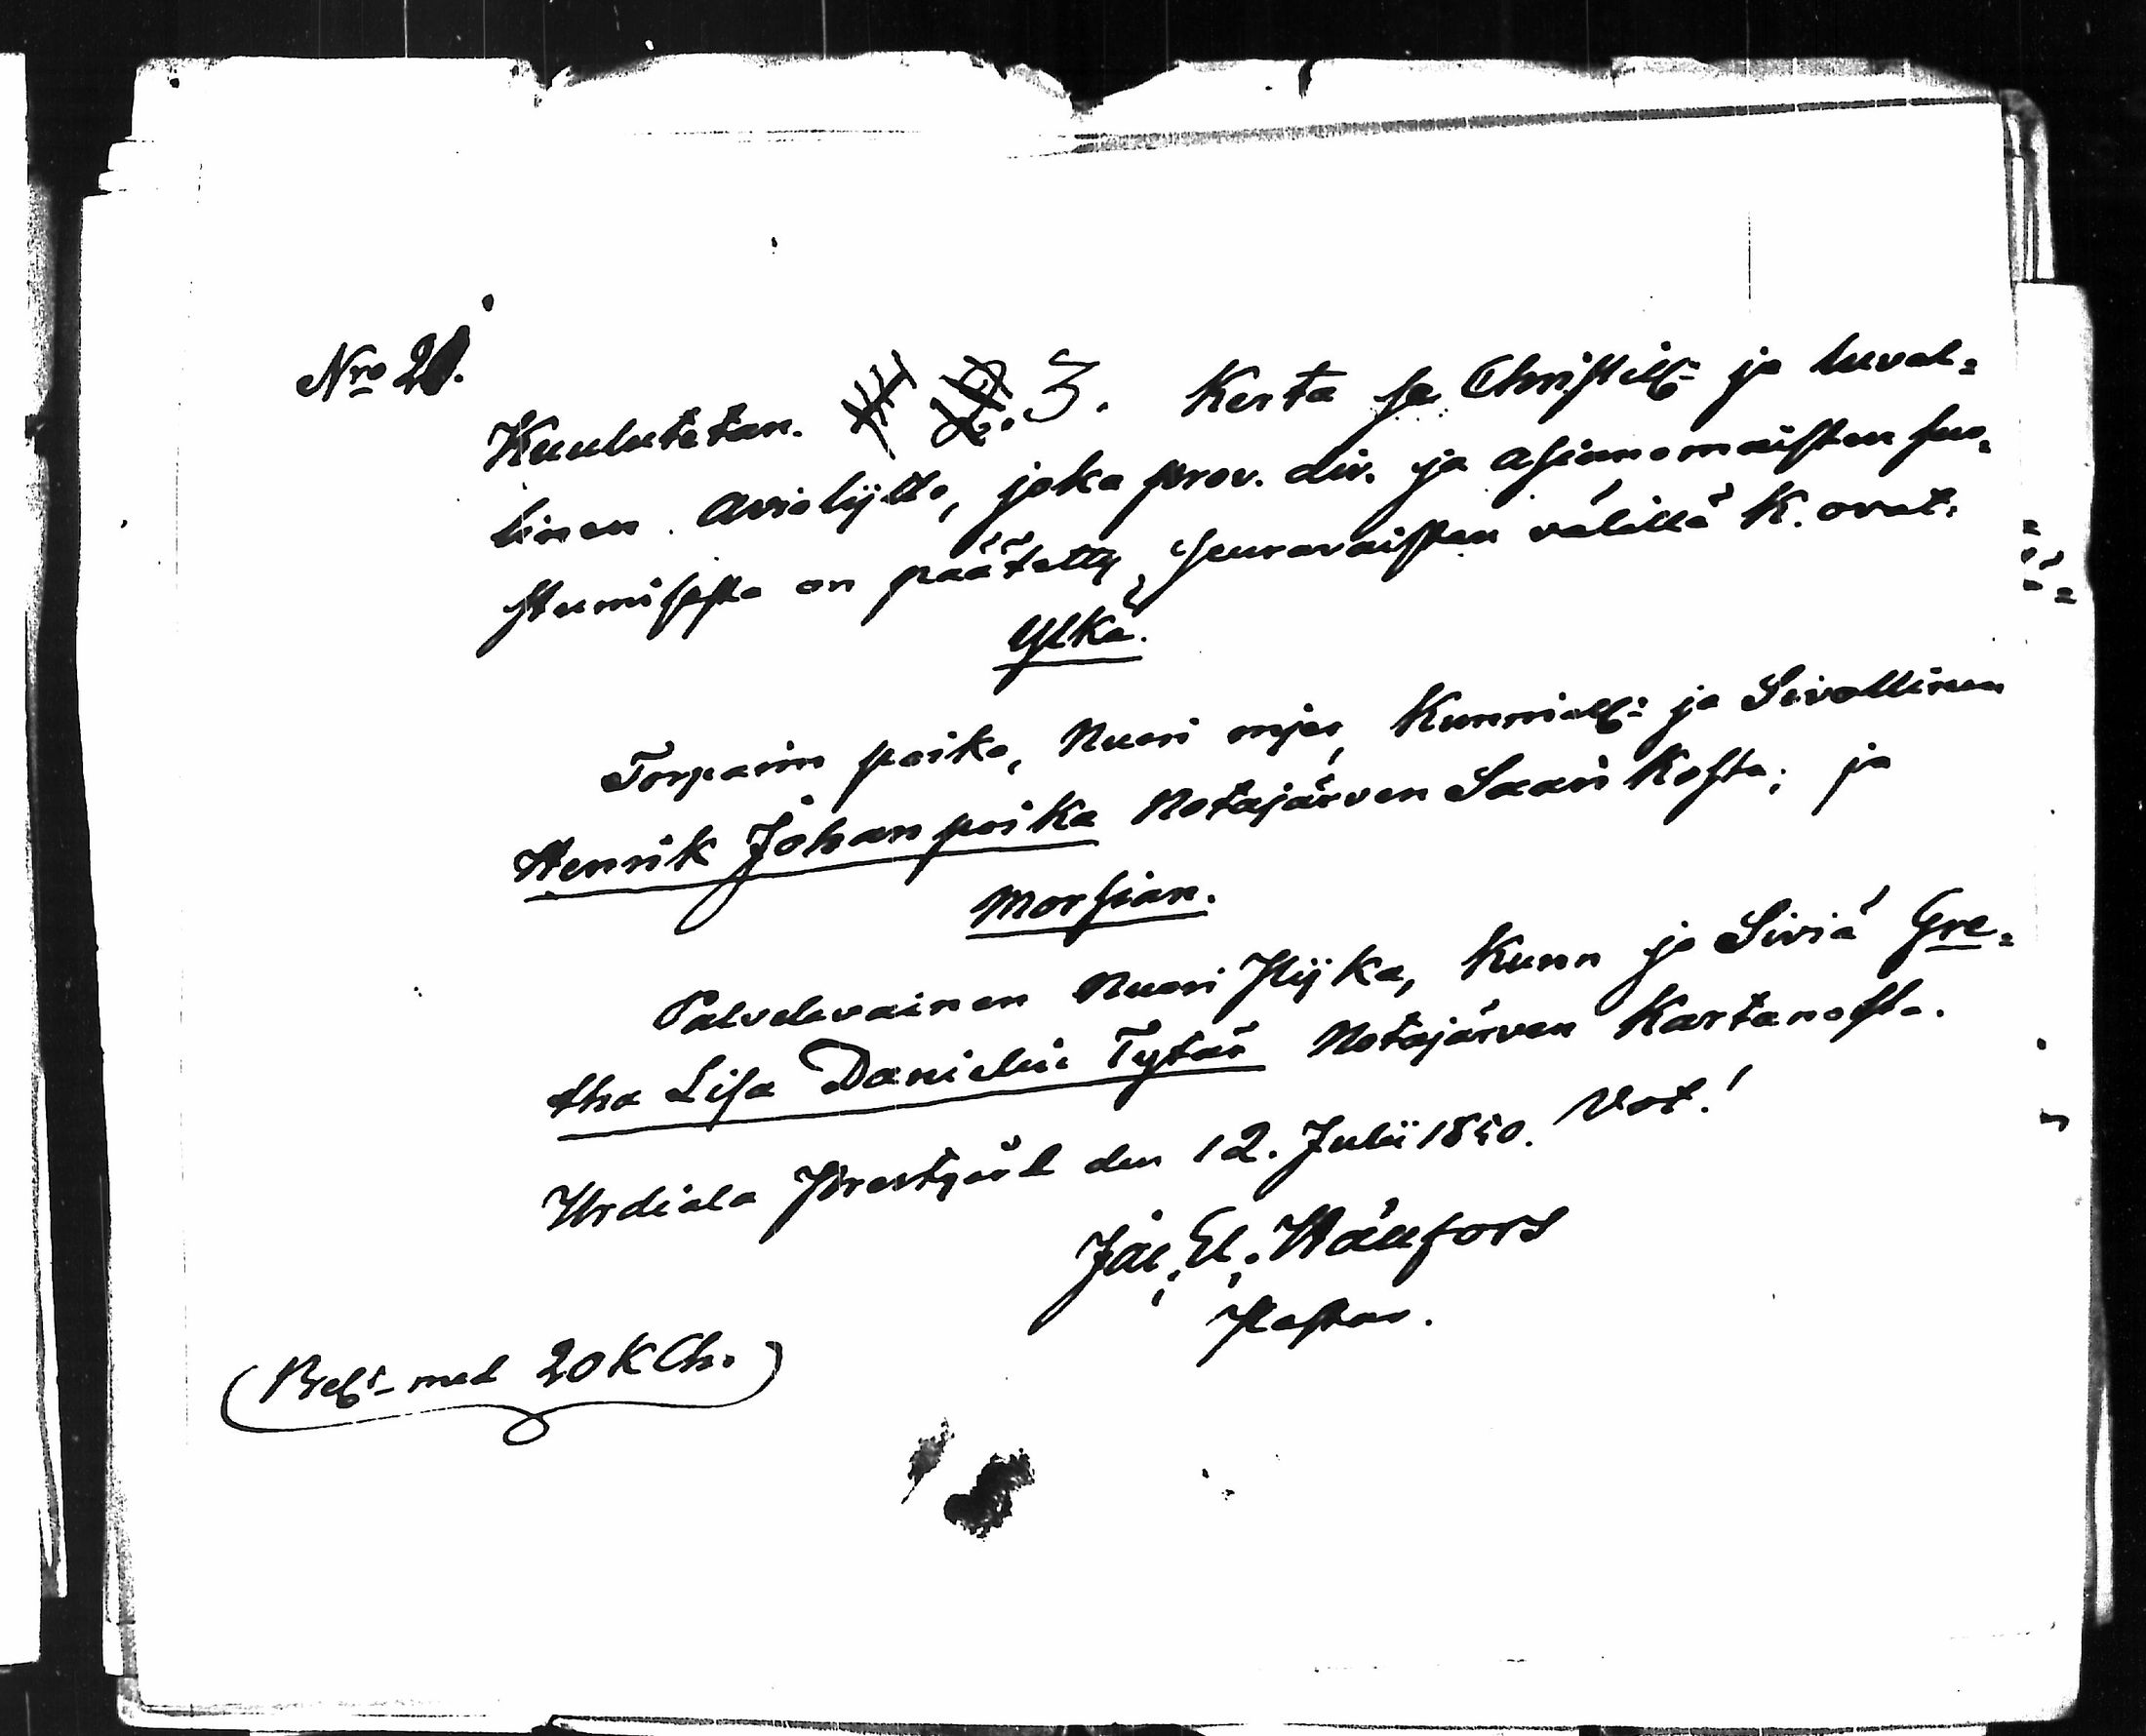 Nro 21.
Kuulutetan. 3. Kerta se Christill: ja luval=
linen Aviolijtto, joka prov. div. ja asianomaisten suo=
stumisesta on päätetty seuravaisten välillä K. ovat.
Ylkä.
Torparin poika, Nuori mjes, Kunniall: ja Sivollinen
Henrik Johan poika Notajärven Saarikosta; ja
Morsian.
Palvelevainen Nuori Pijka, Kunn ja Siviä Gre=
tha Lisa Danielin Tytär Notajärven Kartanosta.
Urdiala Prestgård den 12. Julii 1850. Vot!
El. Hällfors
Pastor.
(Bet. med 20 K Ch.)